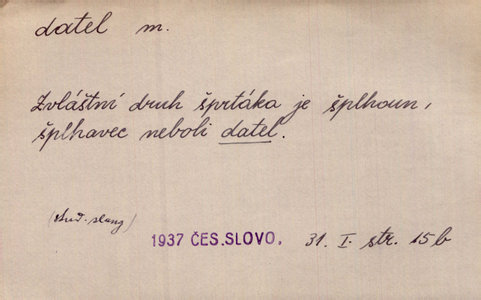 datel m.
Zvláštní druh šprtáka je šplhoun,
šplhavec neboli datel.
(stud. slang)
1937 ČES. SLOVO. 31. I. str. 15b